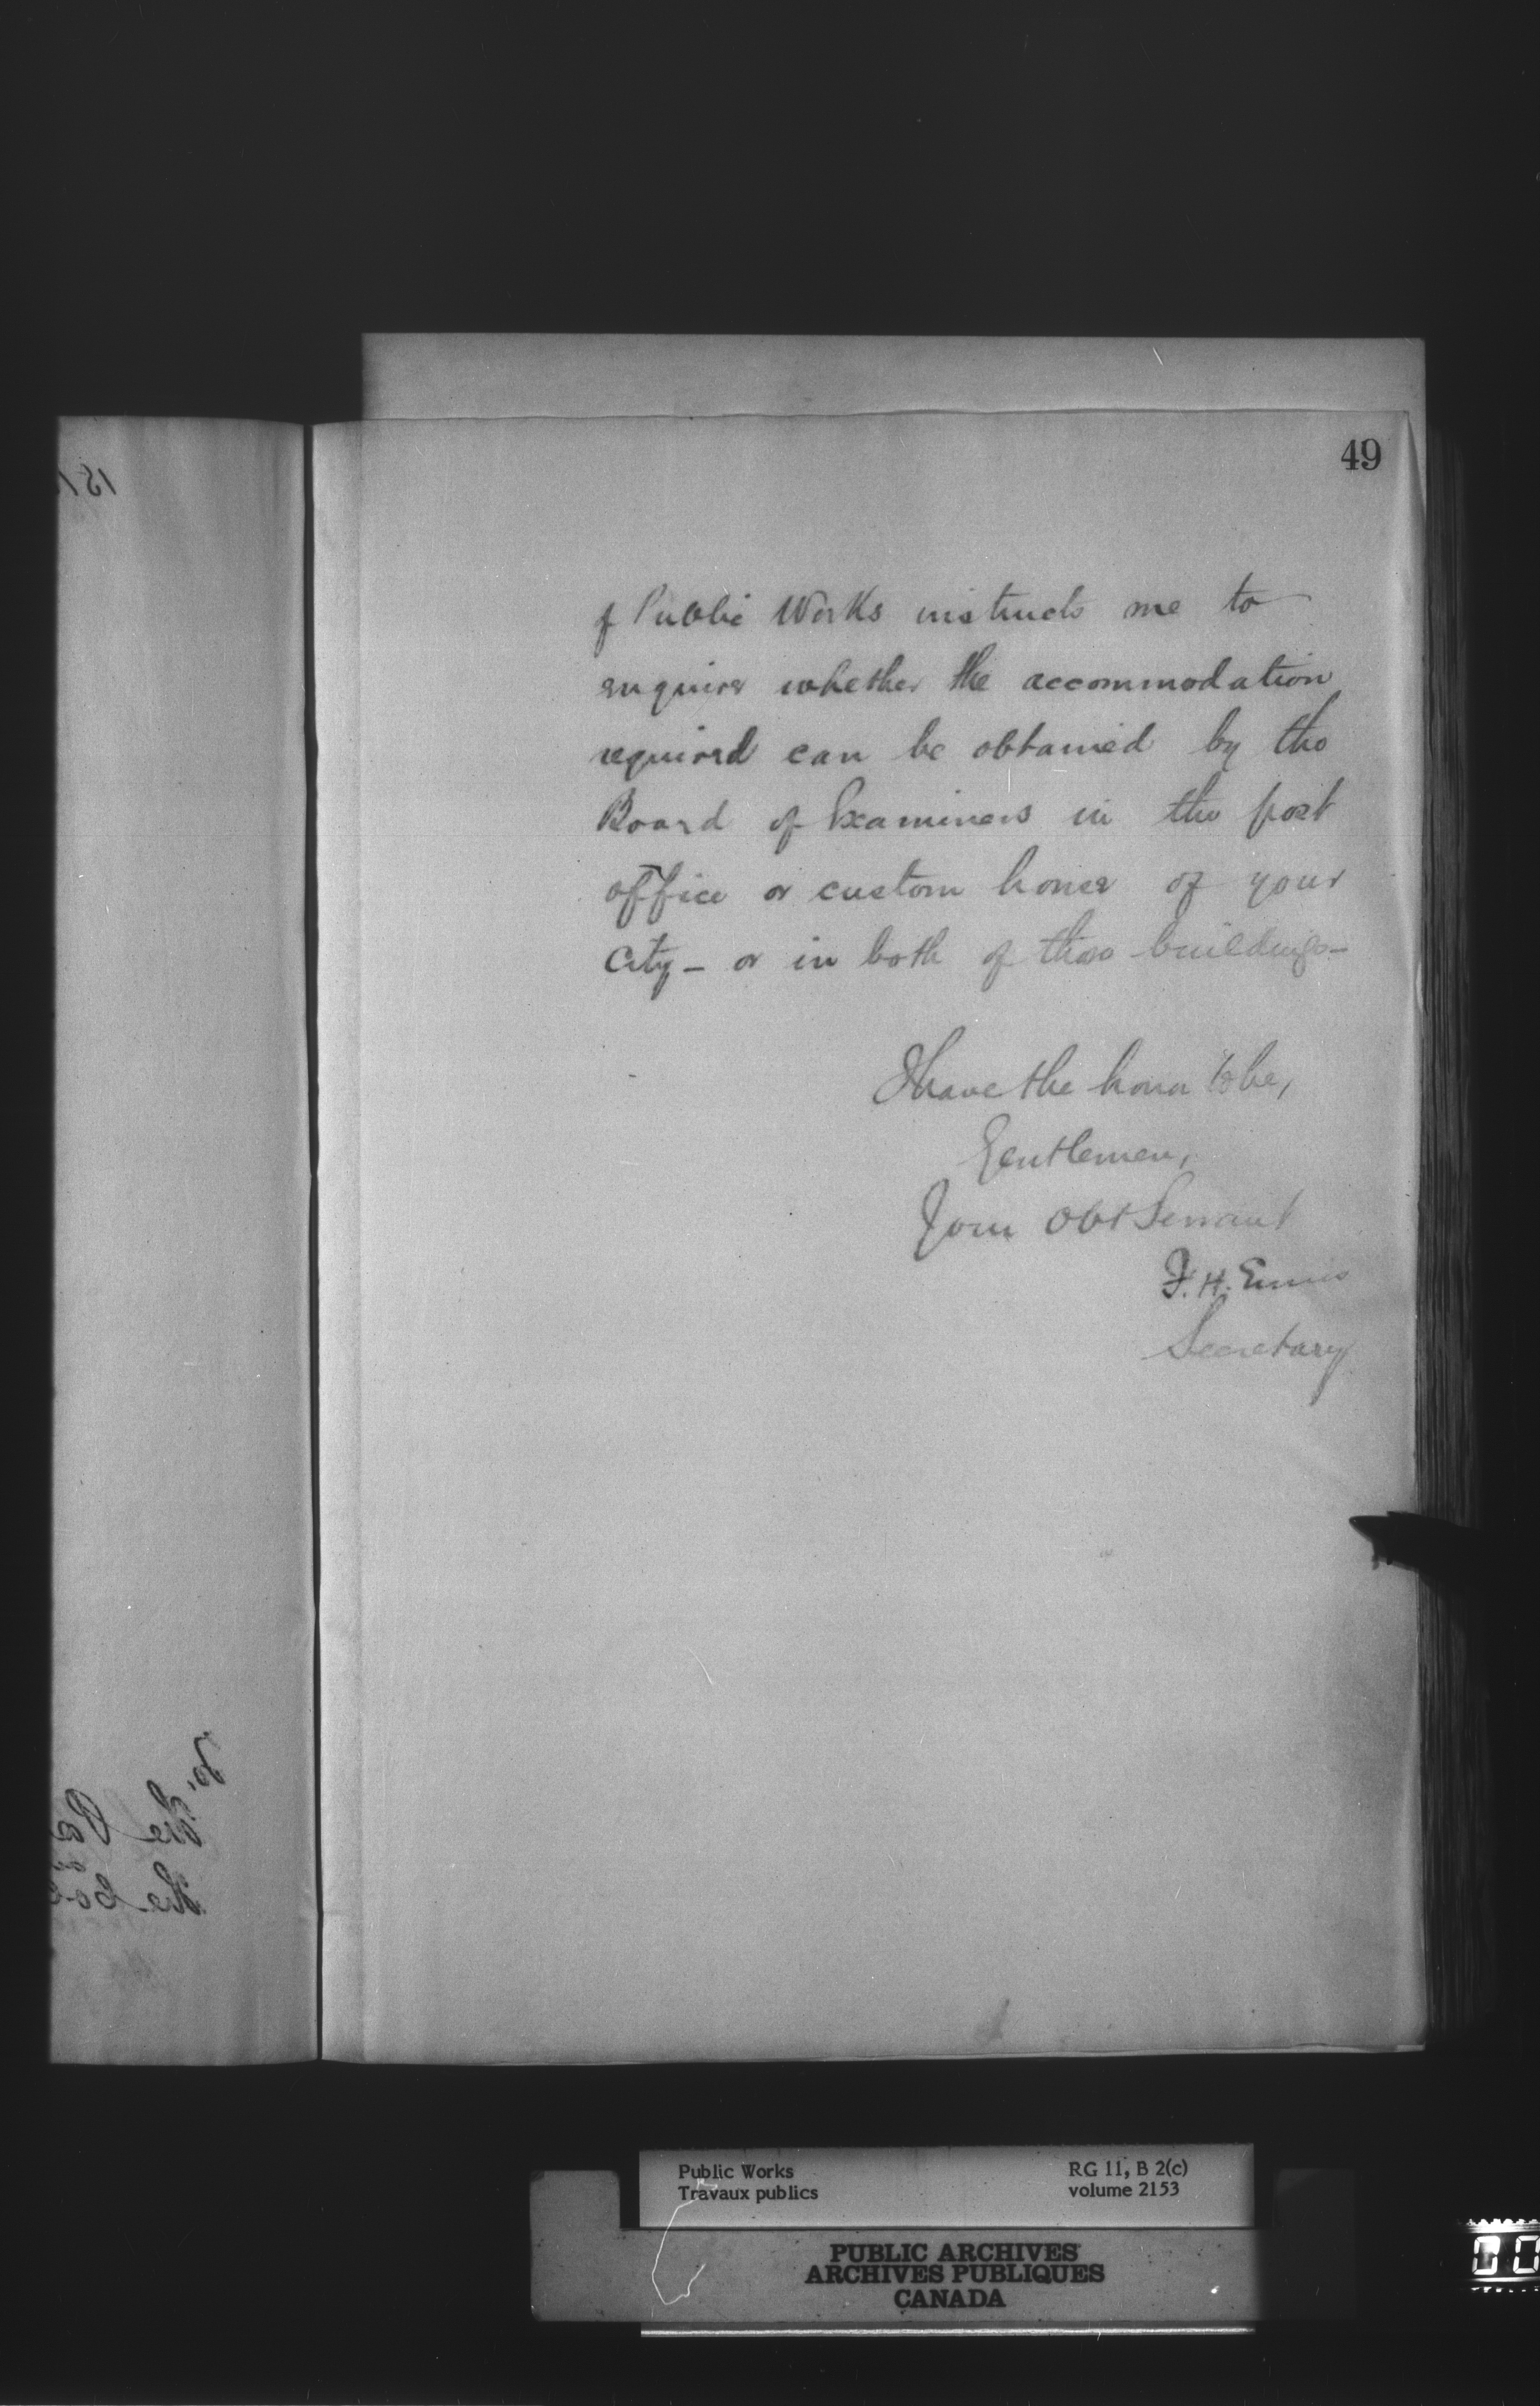 49
of Public Works instructs me to
enquire whether the accommodation
required can be obtained by the
Board of Examiners in the post
office or custom house of your
City - or in both of those buildings -
I have the honor to be,
Gentlemen,
Your Obt Servant
F. H. Ennis
Secretary
Public Works
Travaux publics
RG 11, B 2(c)
volume 2153
PUBLIC ARCHIVES
ARCHIVES PUBLIQUES
CANADA